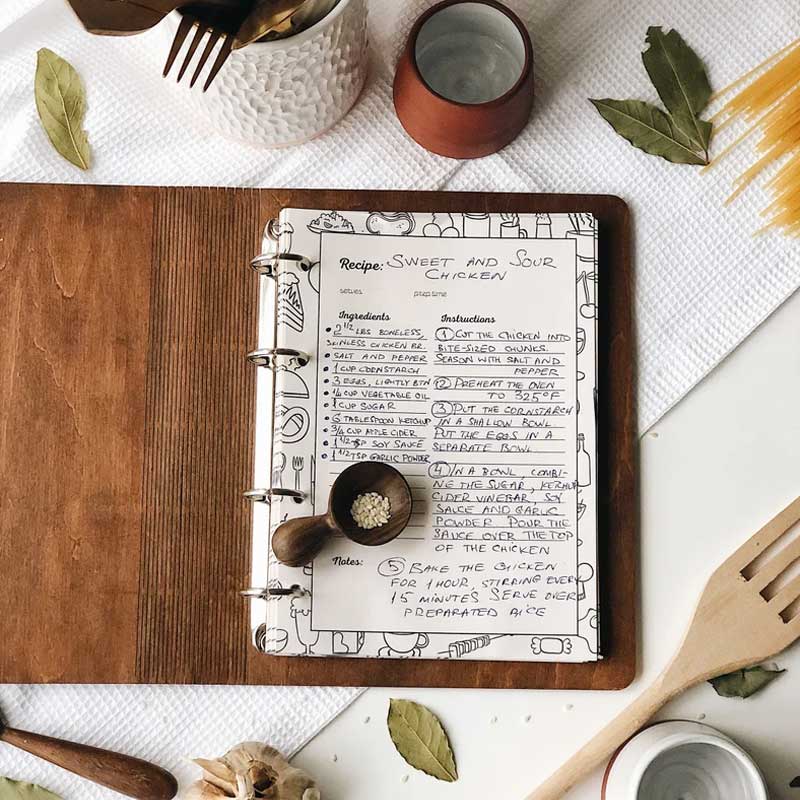 Recipe: SWEET AND SOUR
CHICKEN
serves preptime
Ingredients
• 2 1/2 LBS BONELESS,
SKINLESS CHICKEN BR.
• SALT AND PEPPER
• 1 CUP CORNSTARCH
• 3 EGGS, LIGHTLY BTN
• 1/4 CUP VEGETABLE OIL
• 1 CUP SUGAR
• 6 TABLESPOON KETCHUP
• 3/4 CUP APPLE CIDER
• 1 1/2 SOY SAUCE
• 1 1/2 TSP GARLIC POWDER
Instructions
① CUT THE CHICKEN INTO
BITE-SIZED CHUNKS.
SEASON WITH SALT AND
PEPPER
② PREHEAT THE OVEN
TO 325°F
③ PUT THE CORNSTARCH
IN A SHALLOW BOWL.
PUT THE EGGS IN A
SEPARATE BOWL.
④ IN A BOWL, COMBI-
NE THE SUGAR, KETCHUP
CIDER VINEGAR, SOY
SAUCE AND GARLIC
POWDER POUR THE
SAUCE OVER THE TOP
OF THE CHICKEN
Notes: ⑤ BAKE THE CHICKEN
FOR 1 HOUR, STIRRING EVERY
15 MINUTES SERVE OVER
PREPARATED RICE